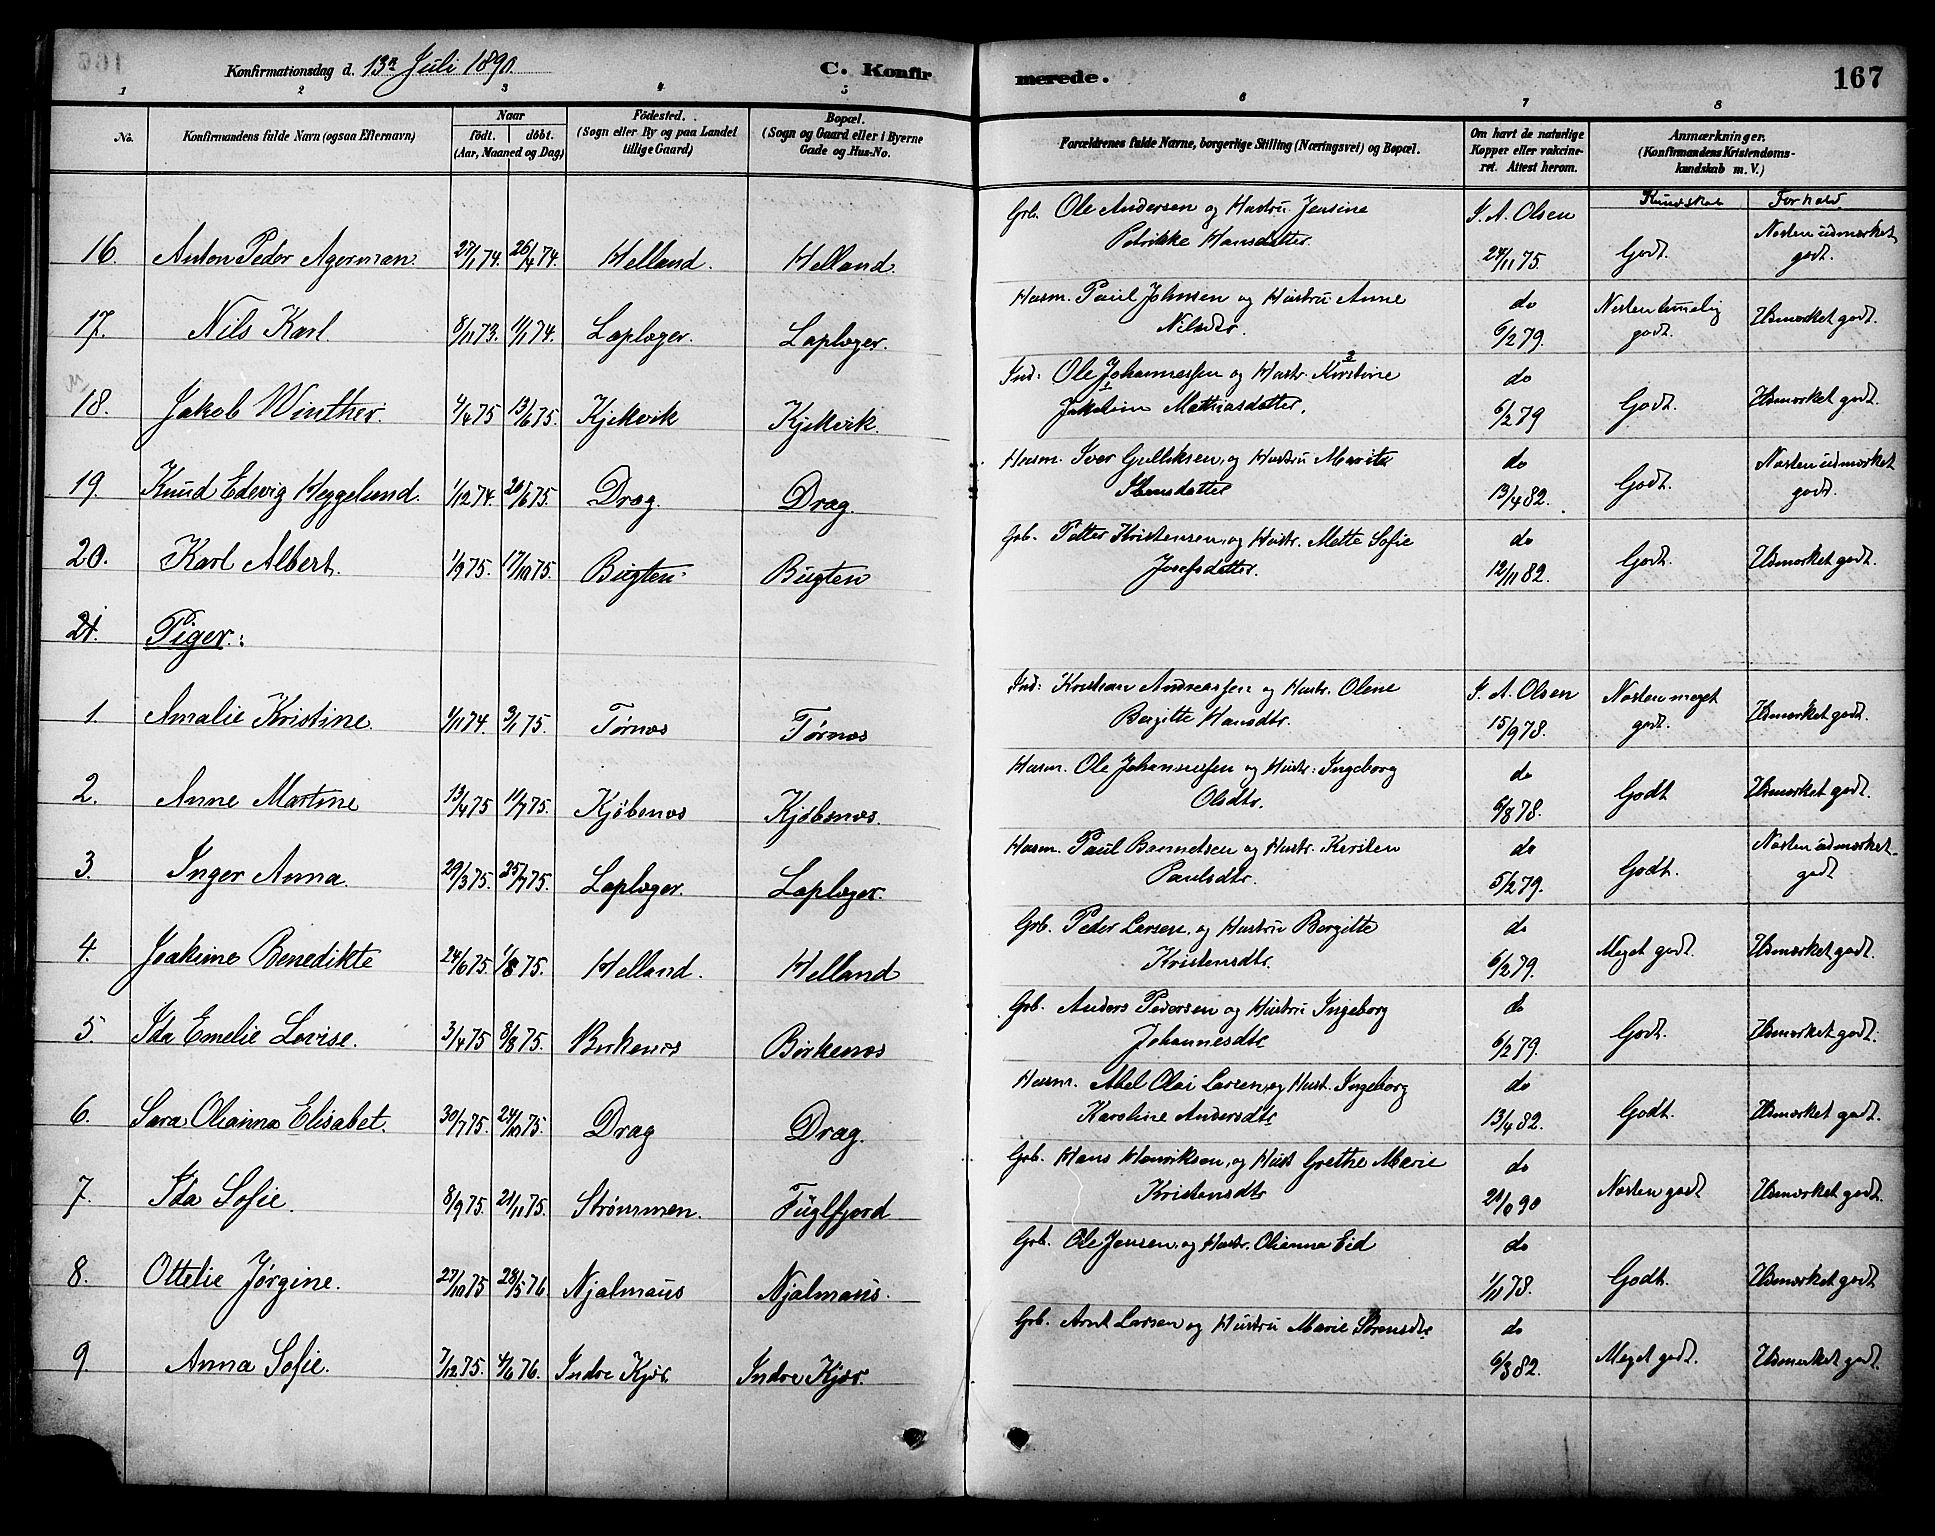 Konfirmationsdag d. 13de Juli 1890. C. Konfirmerede. 167
1 2 3 4 5 6 7 8
No. Konfirmandens fulde Navn (ogsaa Efternavn) Naar født. døbt. (Aar, Maaned og Dag) Fødested. (Sogn eller By og paa Landet tillige Gaard) Bopæl. (Sogn og Gaard eller i Byerne Gade og Hus-No.) Forældrenes fulde Navne, borgerlige Stilling (Næringsvei) og Bopæl. Om havt de naturlige Kopper eller vakcineret. Attest herom. Anmærkninger. (Konfirmandens Kristendomskundskab m. V.)
Kundskab Forhold
16. Anton Peder Agerman. 27/1 74. 26/4 74. Helland. Helland. Grb. Ole Andersen og Hustru Jensine Petrikke Hansdatter. S. A. Olsen 24/11 75. Godt. Næsten udmærket godt.
17. Nils Karl. 8/11 73. 11/1 74. Laplæger. Laplæger. Husm. Paul Johnsen og Hustru Anne Nilsdtr. do 6/2 79. Næsten temelig godt. Udmærket godt.
18. Jakob Winther. 4/4 75 13/6 75. Kjekvik Kjekvik. Ind: Ole Johannessen og Hustr. Kirstine Jakobine Mathiasdatter. do 6/2 79 Godt. Udmærket godt.
19. Knud Edevig Heggelund. 1/12 74. 20/6 75. Drag. Drag. Husm. Iver Gulliksen, og Hustru Marit Stensdatter do 13/4 82. Godt. Næsten udmærket godt.
20. Karl Albert. 1/9 75. 17/10 75. Bugten. Bugten Grb. Petter Kristensen, og Hustr. Mette Sofie Josefsdatter. do 12/11 82. Godt. Udmærket godt.
21. Piger.:
1. Amalie Kristine. 1/11 74. 3/1 75. Tørnæs Tørnæs Ind: Kristian Andreassen og Hustr. Olene Bergitte Hansdtr. S. A. Olsen 15/9 78. Næsten meget godt. Udmærket godt.
2. Anne Martine 13/4 75 11/7 75. Kjøbsnæs Kjøbsnæs. Husm. Ole Johannessen og Hustr: Ingeborg Olsdtr. do 6/8 78. Godt Udmærket godt.
3. Inger Anna. 29/3 75. 25/7 75. Laplæger. Laplæger. Husm. Paul Benedtsen og Hustr. Kirsten Paulsdtr. do 5/2 79. Godt. Næsten udmærket godt
4. Joakime Benedikte 24/6 75. 1/8 75. Helland. Helland Grb. Peder Larsen, og Hustru Bergitte Kristensdtr. do 6/2 79. Meget godt. Udmærket godt.
5. Ida Emelie Lovise. 3/4 75 8/8 75. Birkenæs Birkenæs Grb. Anders Pedersen og Hustru Ingeborg Johannesdtr do 6/2 79. Godt. Udmærket godt.
6. Sara Olianna Elisabet. 30/7 75. 24/10 75. Drag Drag. Husm. Abel Olai Larsen, og Hust. Ingeborg Karoline Andersdtr do 13/4 82. Godt. Udmærket godt.
7. Ida Sofie. 8/9 75. 21/11 75. Strømmen. Fuglfjord Grb. Hans Henriksen, og Hust Grethe Marie Kristensdtr do 90 Næsten godt Udmærket godt.
8. Ottelie Jørgine. 27/10 75 28/5 76. Njalmaus Njalmaus. Grb. Ole Jensen, og Hustr. Olianna Eid do 1/11 78. Godt. Udmærket godt.
9. Anna Sofie. 7/12 75. 4/6 76. Indre Kjær. Indre Kjær. Grb. Arnt Larsen og Hustru Marie Sørensdtr do 6/3 82. Meget godt. Udmærket godt.